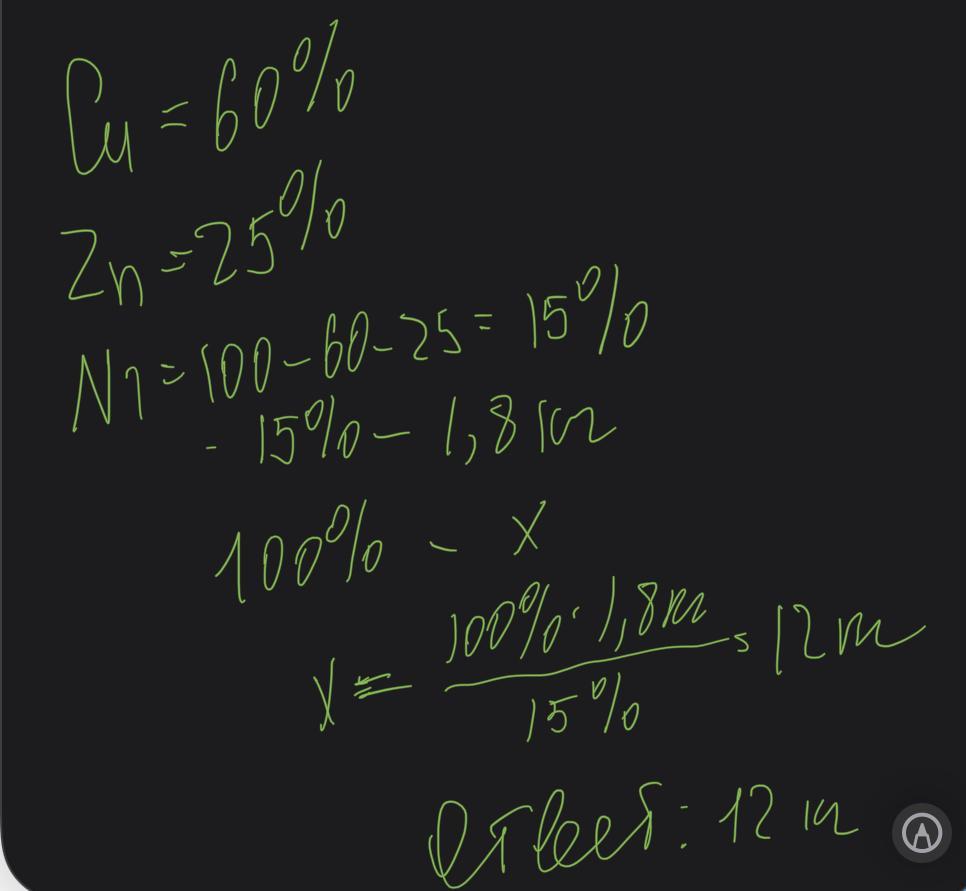 Cu = 60%
Zn = 25%
Ni = 100 - 60 - 25 = 15%
- 15% - 1,8 кг
100% - x
x = 100% · 1,8 кг / 15% = 12 кг
Ответ: 12 кг